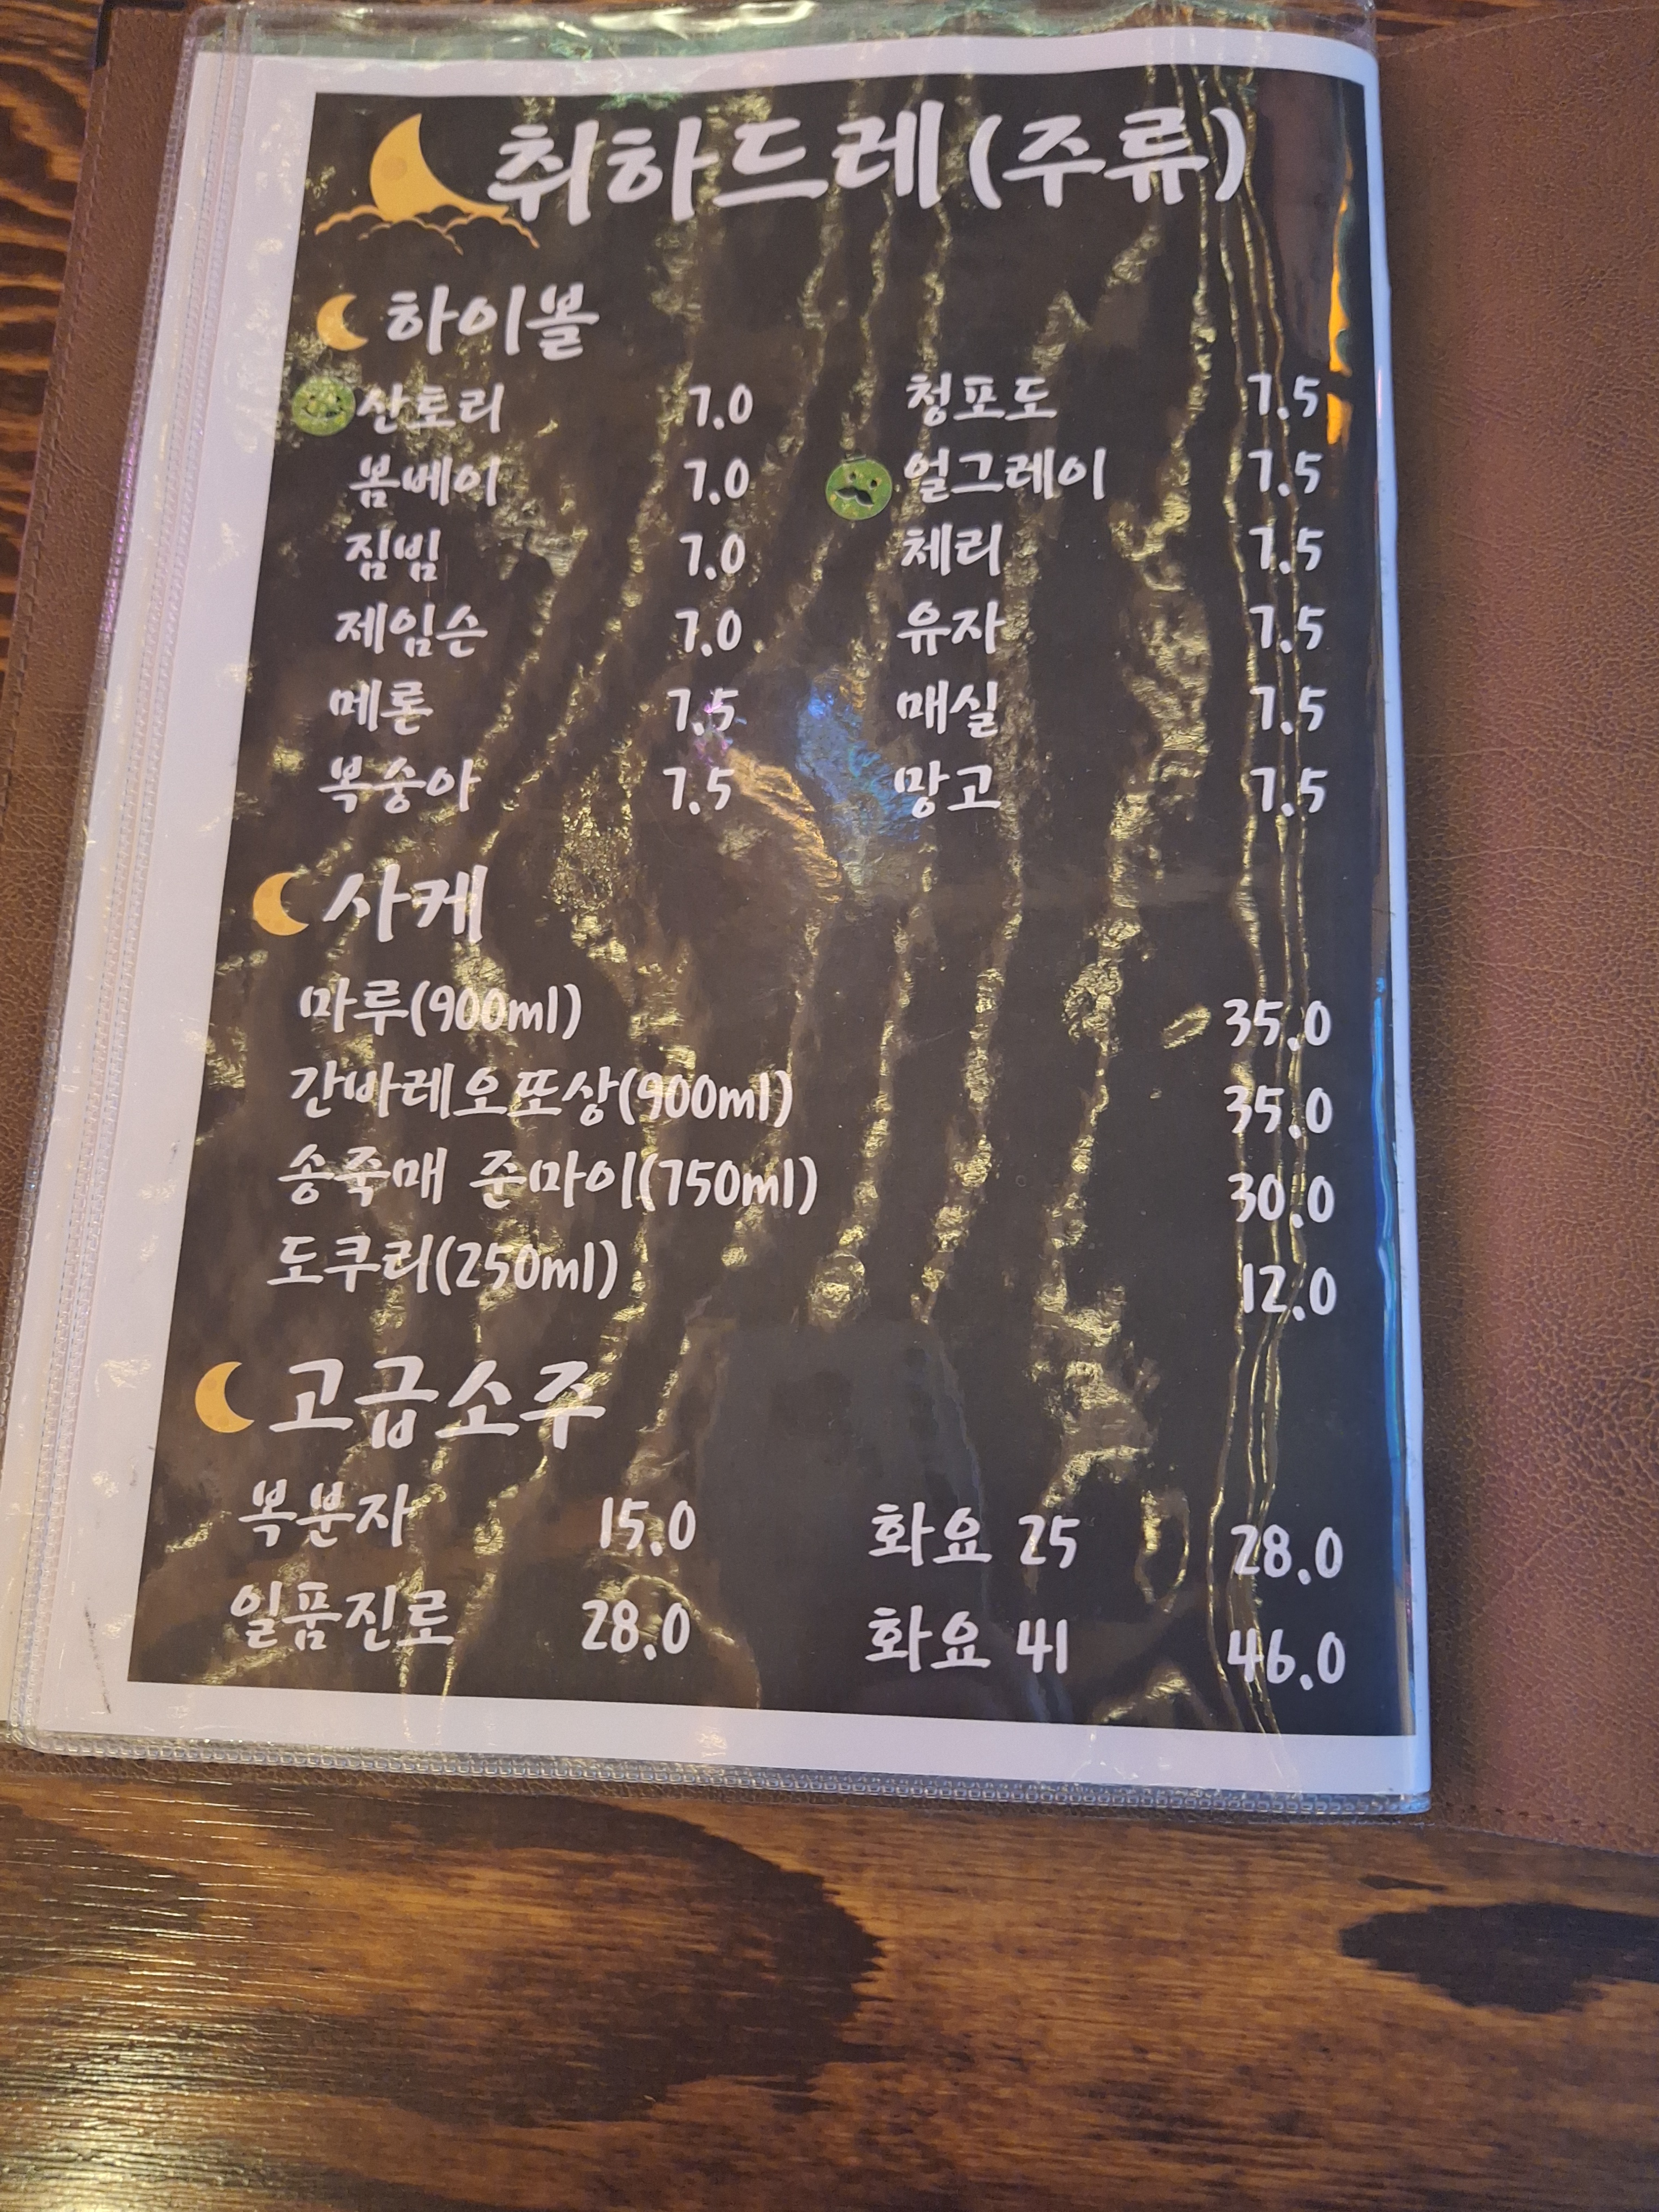 취하드레(주류)
하이볼
산토리 7.0 청포도 7.5
봄베이 7.0 얼그레이 7.5
짐빔 7.0 체리 7.5
제임슨 7.0 유자 7.5
메론 7.5 매실 7.5
복숭아 7.5 망고 7.5
사케
마루(900ml) 35.0
간바레오또상(900ml) 35.0
송죽매 준마이(750ml) 30.0
도쿠리(250ml) 12.0
고급소주
복분자 15.0 화요 25 28.0
일품진로 28.0 화요 41 46.0